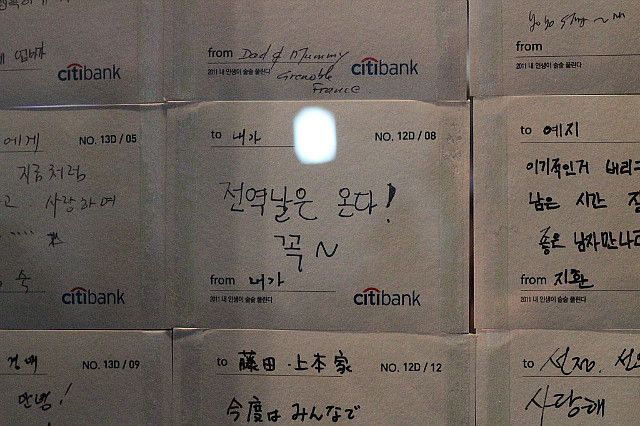 from Dad & Mummy
Grenoble
France
citibank
2011 내 인생이 술술 풀린다
citibank
from
2011 내 인생이 술술 풀린다
에게
NO. 13D / 05
지금처럼
고 사랑하며
숙
citibank
to 내가
NO. 12D / 08
전역날은 온다!
꼭~
from 내가
2011 내 인생이 술술 풀린다
citibank
to 예지
이기적인거 버리
남은 시간
좋은 남자만나
from 지환
2011 내 인생이 술술 풀린다
NO. 13D / 09
안녕!
to 藤田・上本家
NO. 12D / 12
今度はみんなで
to
사랑해